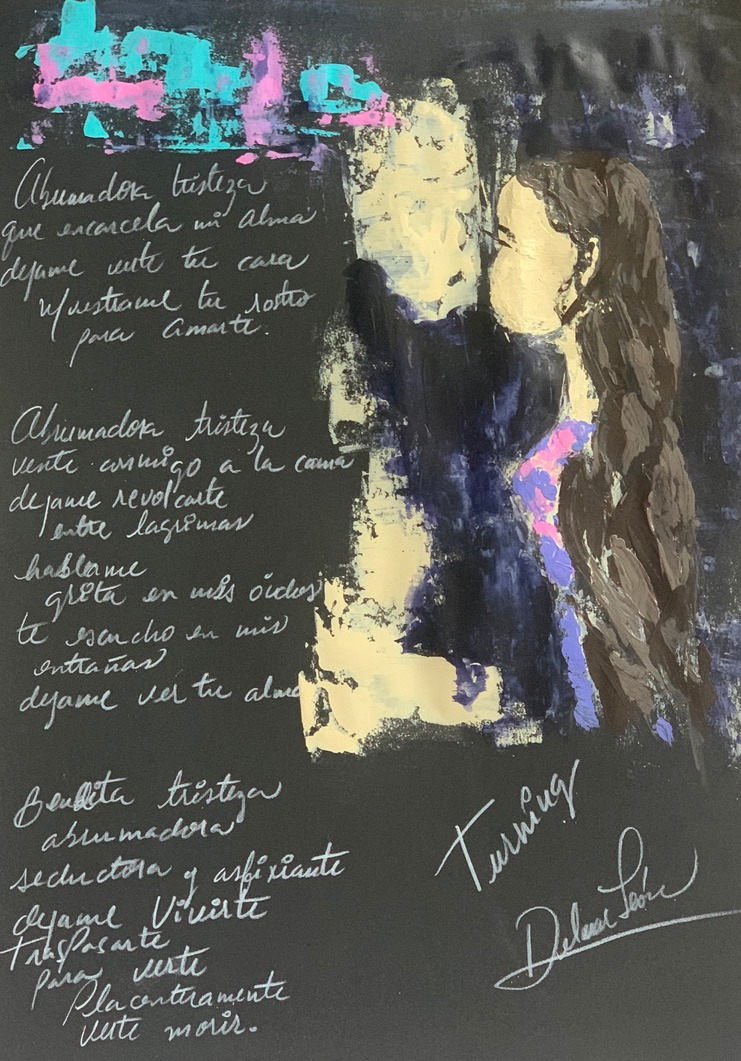 Abrumadora tristeza
que encarcela mi alma
dejame verte tu cara
Muestrame tu rostro
para amarte.
Abrumadora tristeza
vente conmigo a la cama
dejame revolcarte
entre lagrimas
hablame
grita en mis oidos
te escucho en mis
entrañas
dejame ver tu alma
Bendita tristeza
abrumadora
seductora y asfixiante
dejame Vivirte
Traspasarte
para verte
Placenteramente
verte morir.
Turning
León